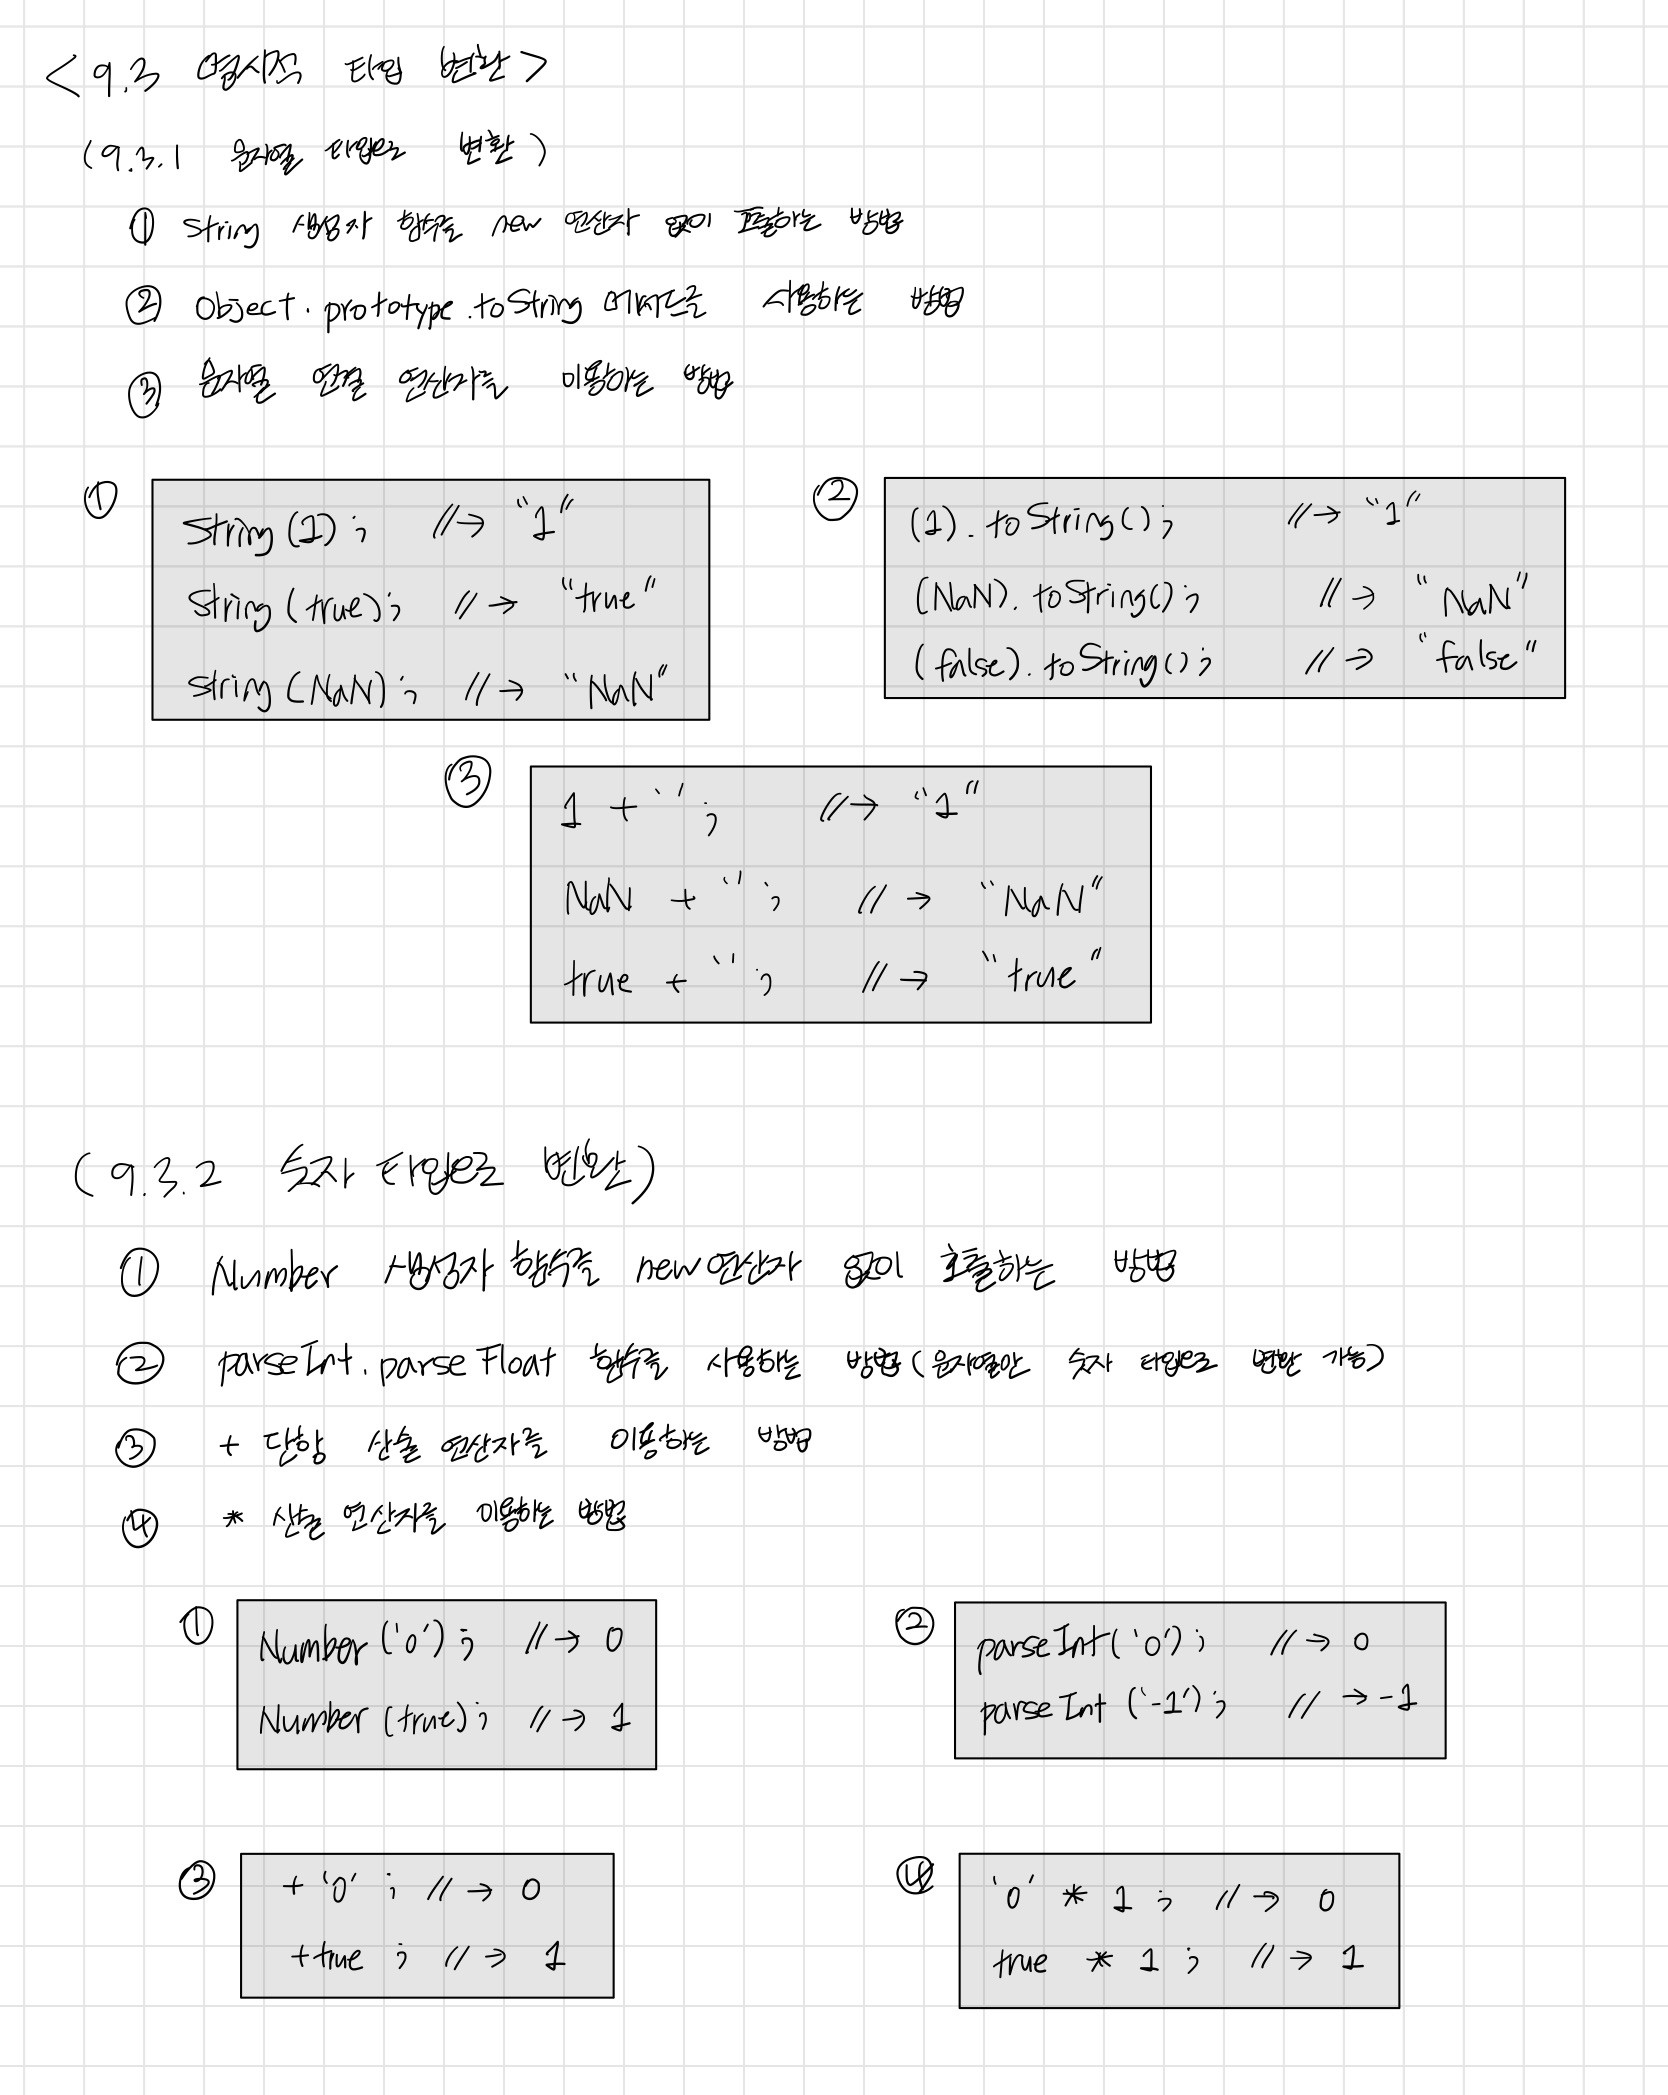 <9.3 명시적 타입 변환>
(9.3.1 문자열 타입으로 변환)
① String 생성자 함수를 new 연산자 없이 호출하는 방법
② Object.prototype.toString 메서드를 사용하는 방법
③ 문자열 연결 연산자를 이용하는 방법
①
String(1); //→ "1"
String(true); //→ "true"
String(NaN); //→ "NaN"
②
(1).toString(); //→ "1"
(NaN).toString(); //→ "NaN"
(false).toString(); //→ "false"
③
1 + ''; //→ "1"
NaN + ''; //→ "NaN"
true + ''; //→ "true"
(9.3.2 숫자 타입으로 변환)
① Number 생성자 함수를 new 연산자 없이 호출하는 방법
② parseInt.parseFloat 함수를 사용하는 방법(문자열만 숫자 타입으로 변환 가능)
③ + 단항 산술 연산자를 이용하는 방법
④ * 산술 연산자를 이용하는 방법
①
Number('0'); //→ 0
Number(true); //→ 1
②
parseInt('0'); //→ 0
parseInt('-1'); //→ -1
③
+'0'; //→ 0
+true; //→ 1
④
'0' * 1; //→ 0
true * 1; //→ 1